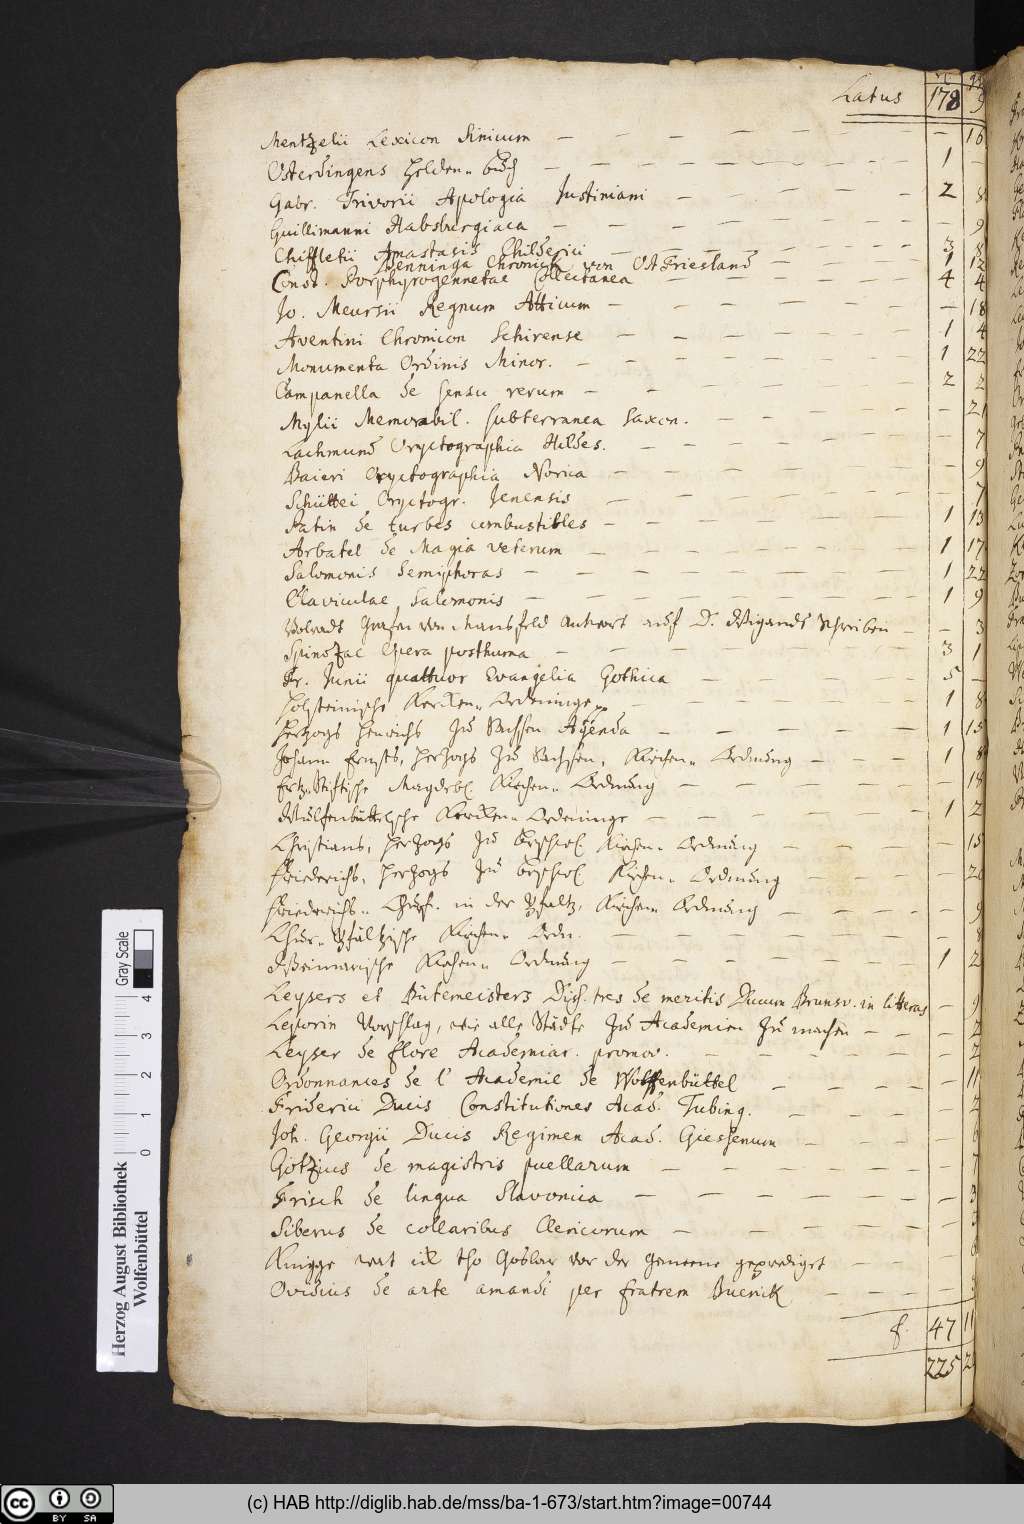 Latus 178 9
Mentzelii Lexicon Sinicum — — — — — — — — 16
Osterdingens Helden-büch — — — — — — — 1 —
Gabr. Trivorii Apologia Justiniani — — — — 2 8
Guillimanni Habsburgiaca — — — — — — — — 9
Chiffletii Anastasis Childerici — — — — — — 3 8
Benninga Chronick von OstFriesland — — — 1 12
Const. Porphyrogennetae Collectanea — — — — 4 4
Jo. Meursii Regnum Atticum — — — — — — 18
Aventini Chronicon Schirense — — — — — — 1 4
Monumenta Ordinis Minor. — — — — — — 1 22
Campanella de sensu rerum — — — — — — 2 2
Mylii Memorabil. subterranea Saxon. — — — — 21
Lachmund Oryctographia Hildes. — — — — — 7
Baieri Oryctographia Norica — — — — — — 9
Schüttei Oryctogr. Jenensis — — — — — — 7
Patin de turbes combustibles — — — — — — 1 13
Arbatel de Magia veterum — — — — — — 1 17
Salomonis Semiphoras — — — — — — 1 22
Claviculae Salomonis — — — — — — 1 9
Volrads Grafen von Mansfeld Antwort auf D. Wigands Schreiben — — 3
Spinozae Opera posthuma — — — — — — 3 1
Fr. Junii quattuor Evangelia Gothica — — — — 5 —
Holsteinische Kercken-Ordeninge — — — — — 1 8
Hertzogs Heinrichs zu Sachsen Agenda — — — — — 1 15
Johann Ernsts, Hertzogs zu Sachsen, Kirchen-Ordnung — — — 1 8
Ertz-Stiftische Magdeb. Kirchen-Ordnung — — — — — 18
Wulfenbüttelsche Kercken-Ordeninge — — — — — 1 2
Christians, Hertzogs zu Kirchen-Ordnung — — — — 15
Friederichs, Hertzogs zu Kirchen-Ordnung — — — —
Friederichs, Churf. in der Pfaltz, Kirchen Ordnung — — — — 9
Chur-Pfältzische Kirchen-Ordn. — — — — — — 8
Weimarische Kirchen-Ordnung — — — — — — 1 2
Leysers et Bütemeisters Diss. tres de meritis Ducum Brunsv. in litteras — 9
Leporin Vorschlag, wie alle Städte zu Academien zu machen — — —
Leyser de flore Academiar. promov. — — — — — 2
Ordonnances de l'Academie de Wolffenbüttel — — — — 11
Friderici Ducis Constitutiones Acad. Tubing. — — — — 2
Joh. Georgii Ducis Regimen Acad. Giessenum — — — —
Götzius de magistris puellarum — — — — — — 7
Frisch de lingua Slavonica — — — — — — 3
Siberus de collaribus Clericorum — — — — —
Kruigge wat ick tho Goslar vor der gemeene geprediget — — —
Ovidius de arte amandi per fratrem — — — —
f. 47 11
225
Gray Scale
0 1 2 3 4
Herzog August Bibliothek
Wolfenbüttel
cc BY SA
(c) HAB http://diglib.hab.de/mss/ba-1-673/start.htm?image=00744